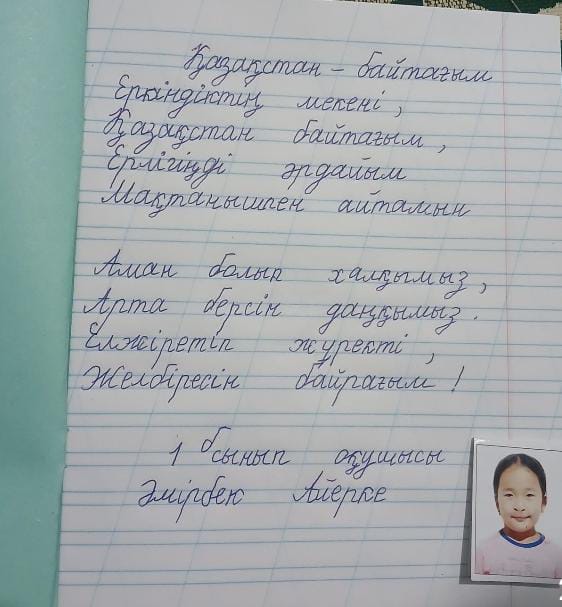 Қазақстан – байтағым
Еркіндіктің мекені,
Қазақстан байтағым,
Ерлігіңді әрдайым
Мақтанышпен айтамын
Аман болып халқымыз,
Арта берсін даңқымыз.
Елжіретіп жүректі,
Желбіресін байрағым!
1 б сынып оқушысы
Әмірбек Айерке